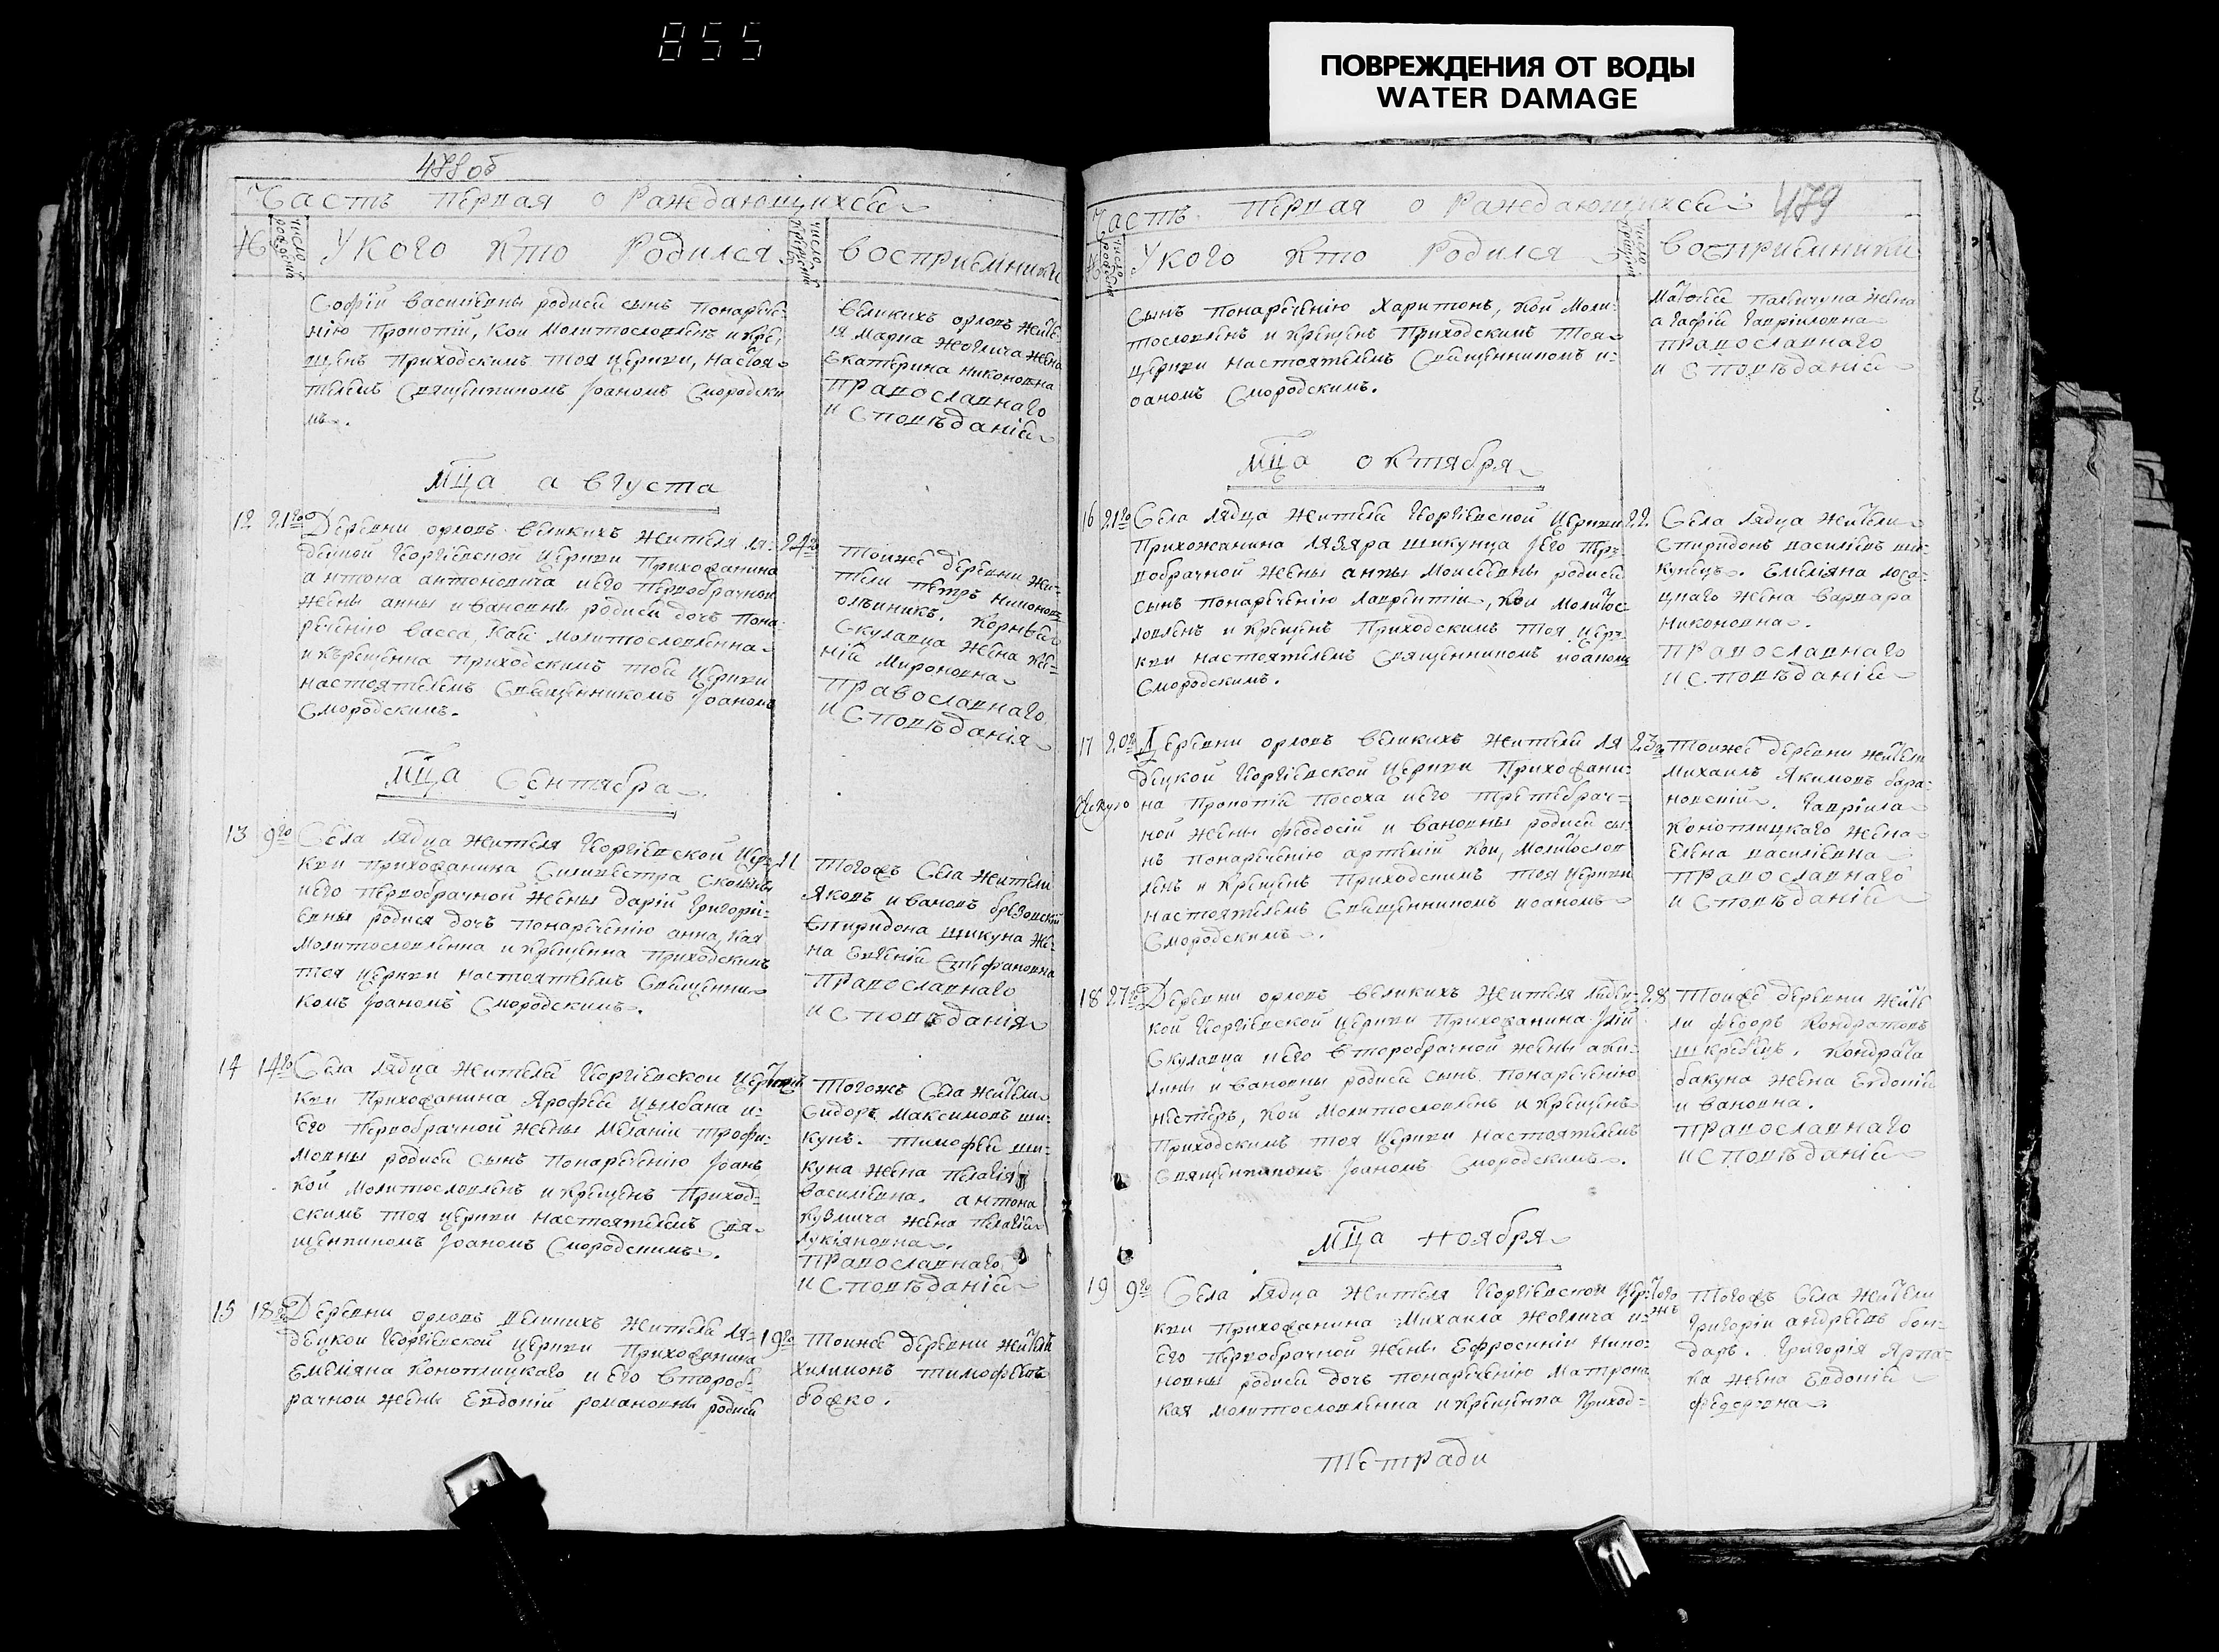 855
ПОВРЕЖДЕНИЯ ОТ ВОДЫ
WATER DAMAGE
478 об
Часть первая о Раждающихся
№ число рождения У кого кто Родился число крещения восприемники
Софіи василіевны родися сынъ понарече-
нію Прокопій, кои молитвословленъ и кре-
щенъ Приходскимъ тоя церкви, настоя-
телемъ Священникомъ Іоаномъ Смородски
мъ.
великихъ орловъ жите-
ля Марка Жоглича жена
Екатерина никоновна
Православнаго
исповѣданія
Мца августа
12 21го Деревни орловъ великихъ жителя ля-
децкой Георгіевской церкви Прихожанина
антона антоновича и его первобрачной
жены анны ивановны родися дочь пона-
речению васса, кая молитвословленна
и крещенна приходскимъ тоя церкви
настоятелемъ Священникомъ Іоаномъ
Смородскимъ.
24го
тоижъ деревни жи-
тели петръ никоновъ
олѣиникъ. Корнѣя
Скулавца жена
Мироновна
Православнаго
исповѣданія
Мца Сентября
13 9го Села лядца жителя Георгіевской цер-
кви прихожанина Силивестра
и его первобрачной жены даріи григорі-
евны родися дочь понареченію анна, кая
молитвословленна и крещенна приходскимъ
тоя церкви настоятелемъ Священни-
комъ Іоаномъ Смородскимъ.
11
Тогожъ Села жители
Яковъ ивановъ брезовский
Спиридона шикуна же-
на Евгенія Стефановна
Православнаго
исповѣданія
14 14го Села лядца жителя Георгіевской цер-
кви Прихожанина Ярофея цымбана и
его первобрачной жены Меланіи трофи-
мовны родися сынъ понареченію Іоанъ
кой молитвословленъ и крещенъ Приход-
скимъ тоя церкви настоятелемъ Свя-
щенникомъ Іоаномъ Смородскимъ.
Тогожъ Села жители
Сидоръ Максимовъ ши-
кунъ. тимофея ши-
куна жена Пелагія
василіевна. антона
кузмича жена Пелагія
лукіяновна.
Православнаго
исповѣданія
15 18го Деревни орловъ великихъ жителя ля-
децкой Георгіевской церкви Прихожанина
Емеліяна Коноплицкаго и его второб-
рачной жены Евдокіи романовны родися
19го
Тоижъ деревни житель
Филимонъ тимофѣевъ
божко.
479
Часть первая о Раждающихся
№ число рождения У кого кто Родился число крещения восприемники
сынъ понареченію Харитонъ, кой моли-
тословленъ и крещенъ Приходскимъ тоя
церкви настоятелемъ Священникомъ и-
оаномъ Смородскимъ.
Матфея жена
агафія гавріиловна
православнаго
исповѣданія
Мца октября
16 21го Села лядца жителя Георгіевской церкви
Прихожанина лазаря шикунца и его пер-
вобрачной жены анны моисеевны родися
сынъ понареченію лаврентій, кои молитос-
ловленъ и крещенъ Приходскимъ тоя цер-
кви настоятелемъ Священникомъ иоаномъ
Смородскимъ.
22.
Села лядца жители
Спиридонъ василіевъ ши-
кунецъ. Емеліяна
жена варвара
никоновна.
Православнаго
исповѣданія
17 20го Деревни орловъ великихъ жителя ля
децкой Георгіевской церкви Прихожани-
на Прокопія Посоха и его третебрач-
ной жены Феодосіи ивановны родися сы-
нъ понареченію артемій кои, молитослов
ленъ и крещенъ Приходскимъ тоя церкви
настоятелемъ Священникомъ иоаномъ
Смородскимъ.
23го
Тоижъ деревни жители
Михаилъ Якимовъ бара-
новскій. Гавріила
Коноплицкаго жена
Елена василіевна
Православнаго
исповѣданія
18 27го Деревни орловъ великихъ жителя лядец-
кой Георгіевской церкви Прихожанина Иліи
Скулавца и его второбрачной жены аки-
лины ивановны родися сынъ понареченію
нестеръ, кой молитословленъ и крещенъ
Приходскимъ тоя церкви настоятелемъ
Священникомъ Іоаномъ Смородскимъ.
28
Тоижъ деревни жите
ли федоръ Кондратовъ
шкребецъ. Кондрата
бакуна жена Евдокія
ивановна.
Православнаго
исповѣданія
Мца ноября
19 9го Села лядца жителя Георгіевской цер-
кви прихожанина Михаила Жоглича и
его первобрачной жены Ефросиніи нико-
новны родися дочь понареченію Матрона
кая молитословленна и крещенна Приход-
тогожъ
Тогожъ Села жители
Григорій андреевъ бон-
даръ. Григорія
жена Евдокія
федоровна.
тетради